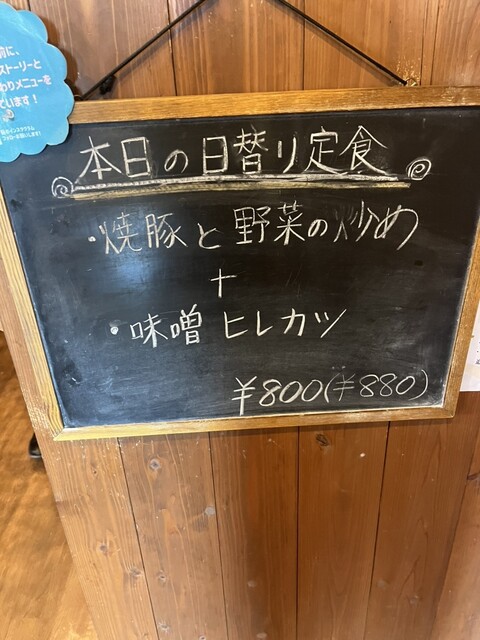 前に、
ストーリーと
わりメニューを
ています！
本日の日替り定食
・焼豚と野菜の炒め
+
・味噌ヒレカツ
¥800(¥880)